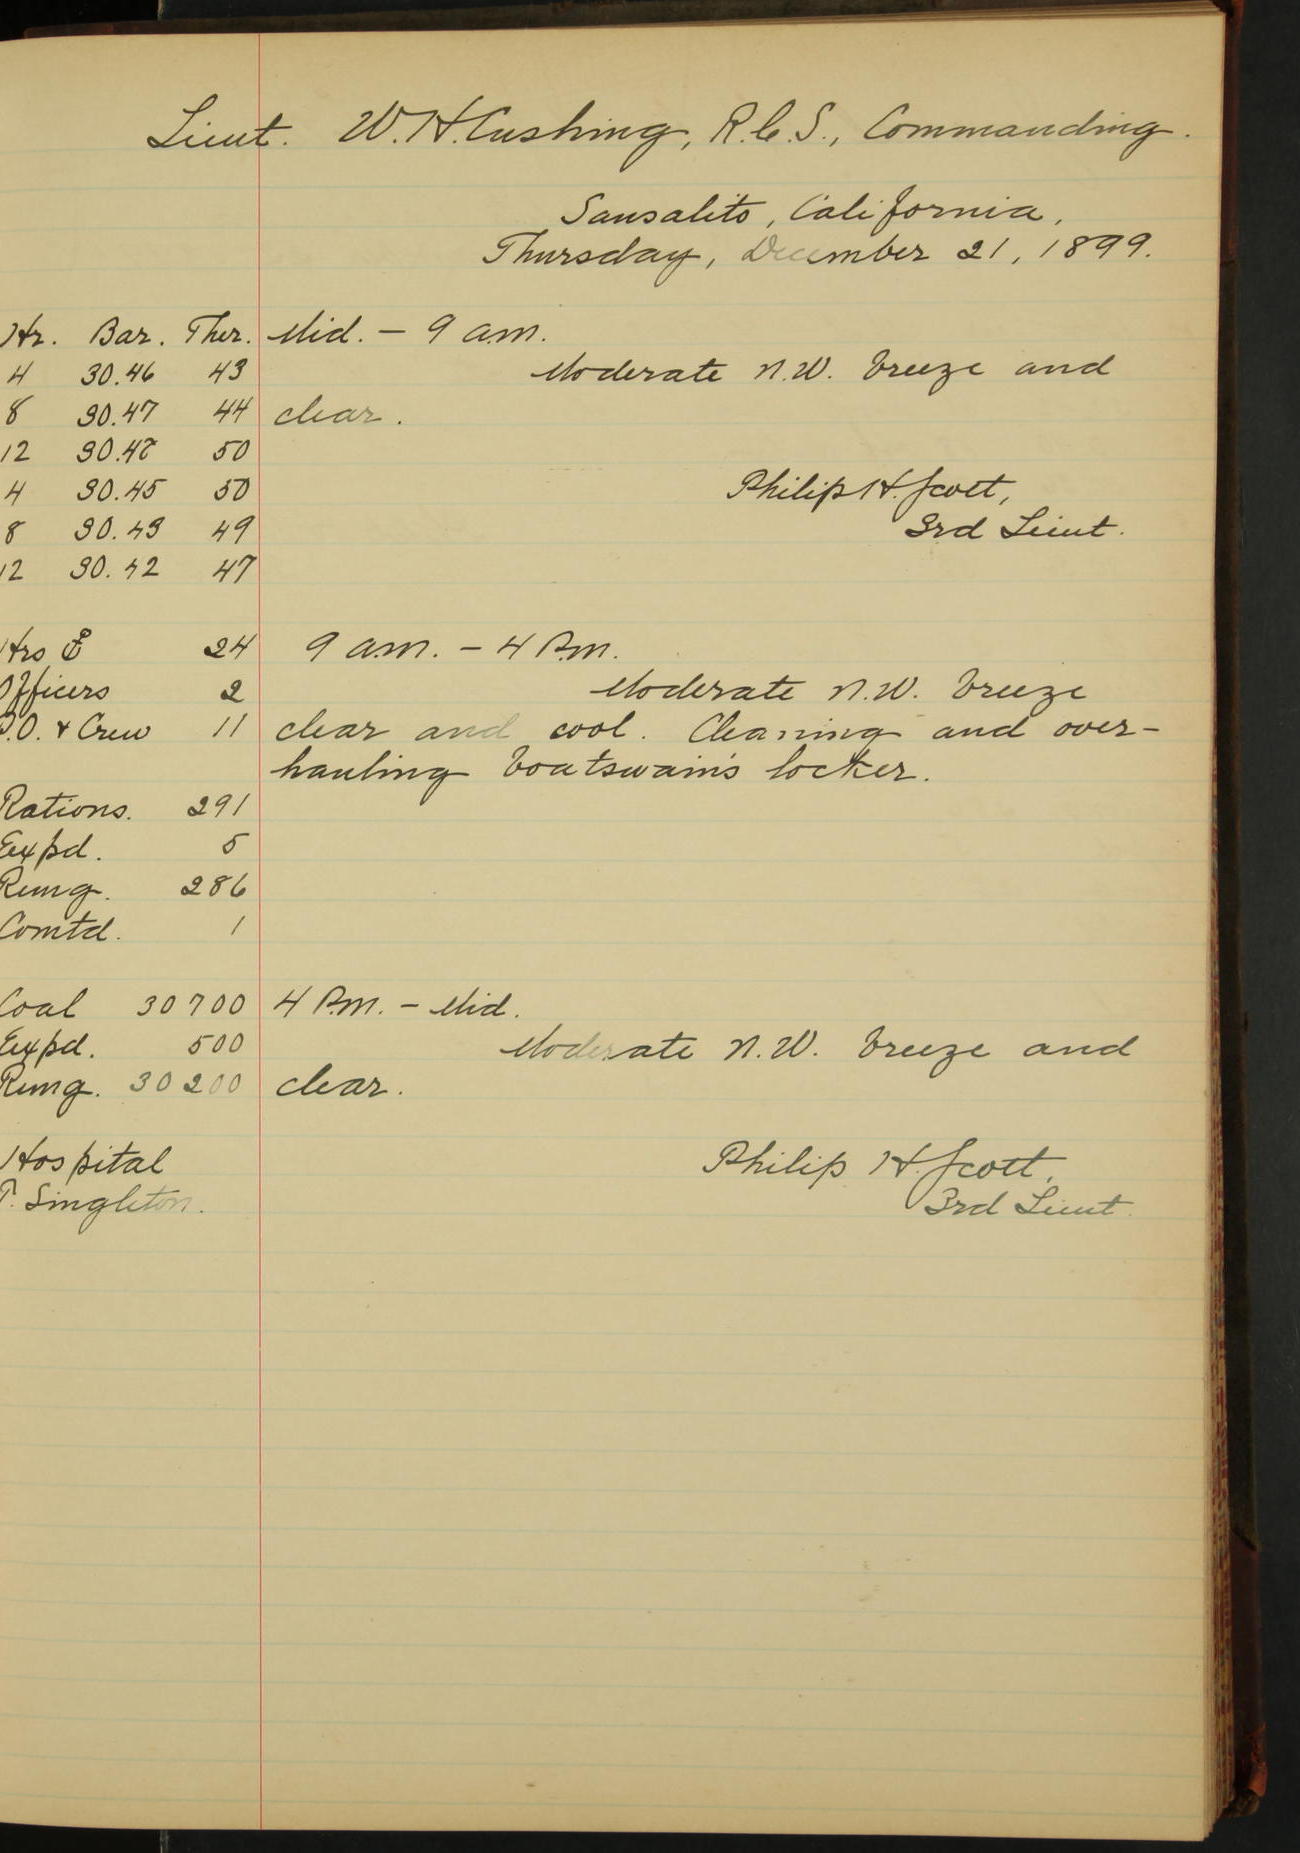 Lieut. W. H. Cushing, R.C.S., Commanding.
Sausalito, California,
Thursday, December 21, 1899.
Hr. Bar. Ther. Mid. – 9 a.m.
4 30.46 43 Moderate N.W. breeze and
8 30.47 44 clear.
12 30.48 50
4 30.45 50 Philip H. Scott,
8 30.43 49 3rd Lieut.
12 30.42 47
Hrs 24 9 a.m. – 4 P.m.
Officers 2 Moderate N.W. breeze
P.O. & Crew 11 clear and cool. Cleaning and over-
hauling boatswain's locker.
Rations. 291
Expd. 5
Remg. 286
Comtd. 1
Coal 30700 4 P.m. – Mid.
Expd. 500 Moderate N.W. breeze and
Remg. 30200 clear.
Hospital Philip H. Scott,
P. Singleton. 3rd Lieut.